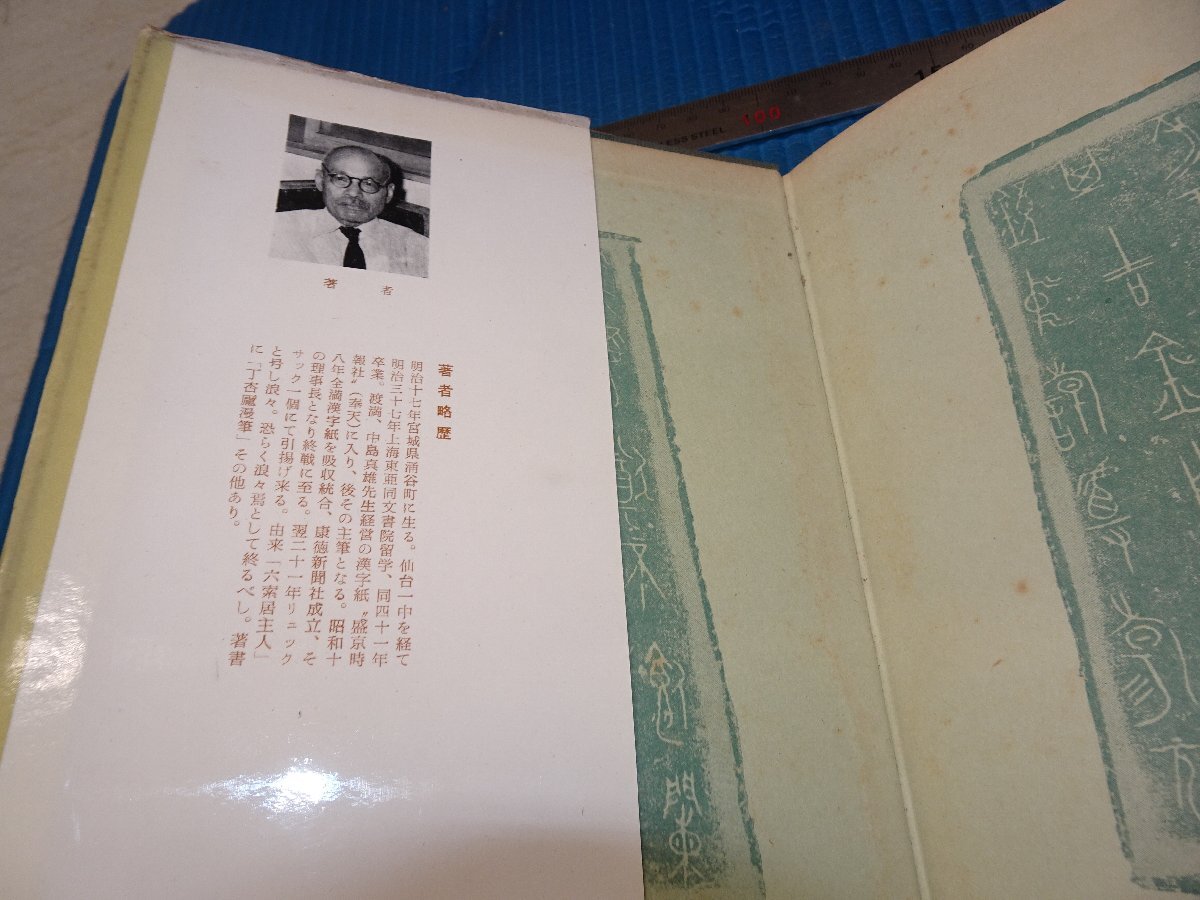 著者
著者略歴
明治十七年宮城県涌谷町に生る。仙台一中を経て
明治三十七年上海東亜同文書院留学、同四十一年
卒業。渡満、中島真雄先生経営の漢字紙〝盛京時
報社〟(奉天)に入り、後その主筆となる。昭和十
八年全満漢字紙を吸収統合、康徳新聞社成立、そ
の理事長となり終戦に至る。翌二十一年リュック
サック一個にて引揚げ来る。由来「六索居主人」
と号し浪々。恐らく浪々焉として終るべし。著書
に「丁杏廬漫筆」その他あり。
LESS STEEL
100
15
吉金
関東